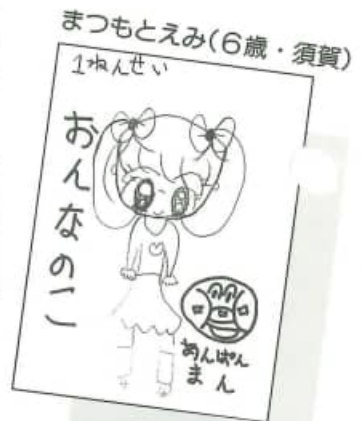 まつもとえみ(6歳・須賀)
1ねんせい
おんなのこ
あんぱん
まん